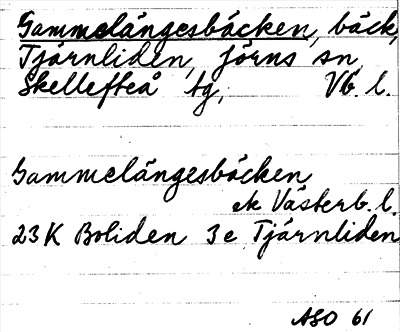 Gammelängesbäcken, bäck,
Tjärnliden, Jörns sn,
Skellefteå tg, Vb. l.
Gammelängesbäcken
ek Västerb. l.
23K Boliden 3e Tjärnliden
ASO 61